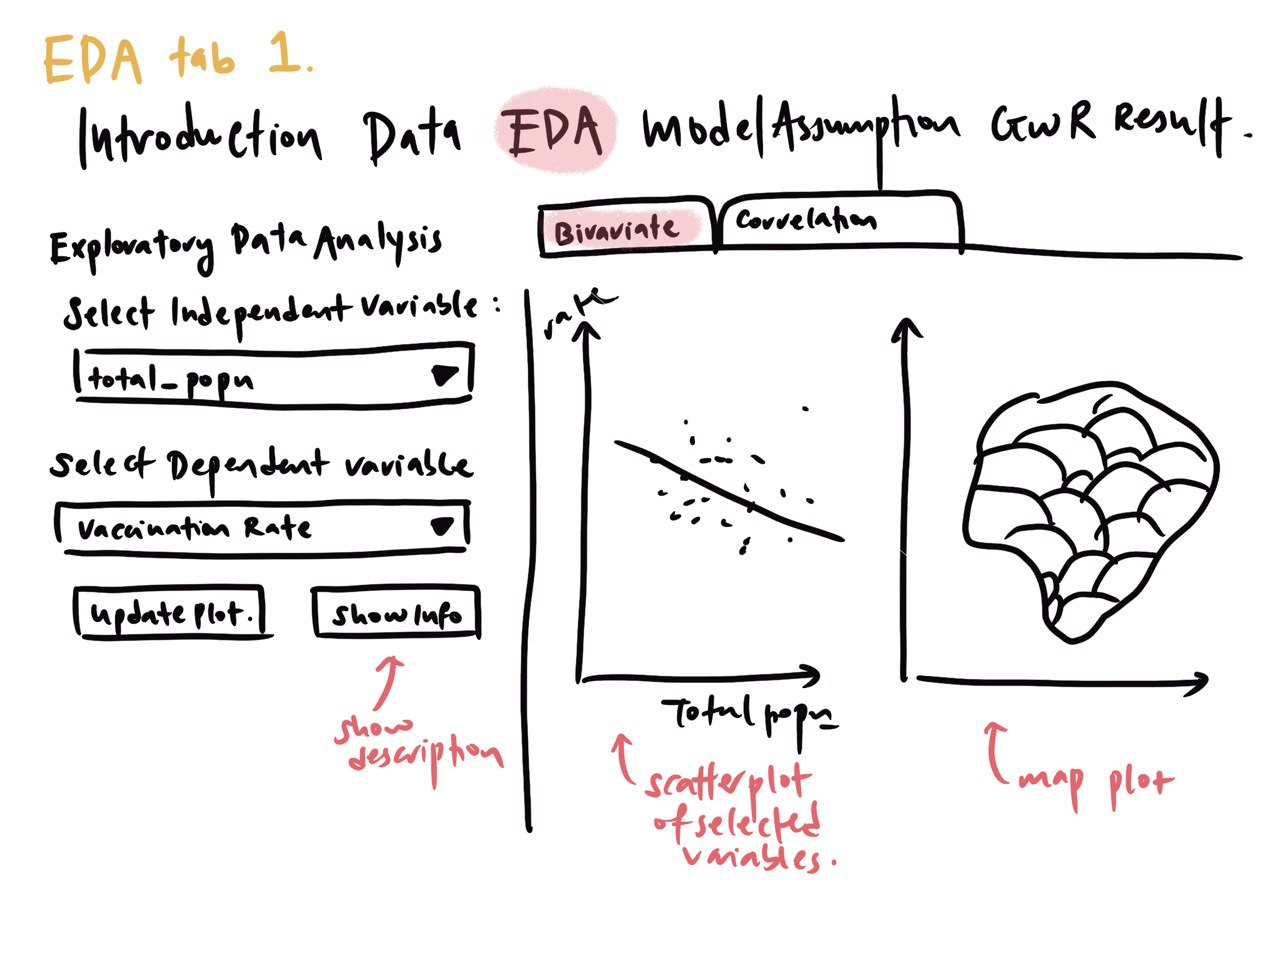 EDA tab 1.
Introduction Data EDA Model Assumption GWR Result.
Bivariate Correlation
Exploratory Data Analysis
Select Independent Variable:
total_popn
Select Dependent variable
Vaccination Rate
update plot. show info
show
description
rate
Total popn
scatterplot
of selected
variables.
map plot